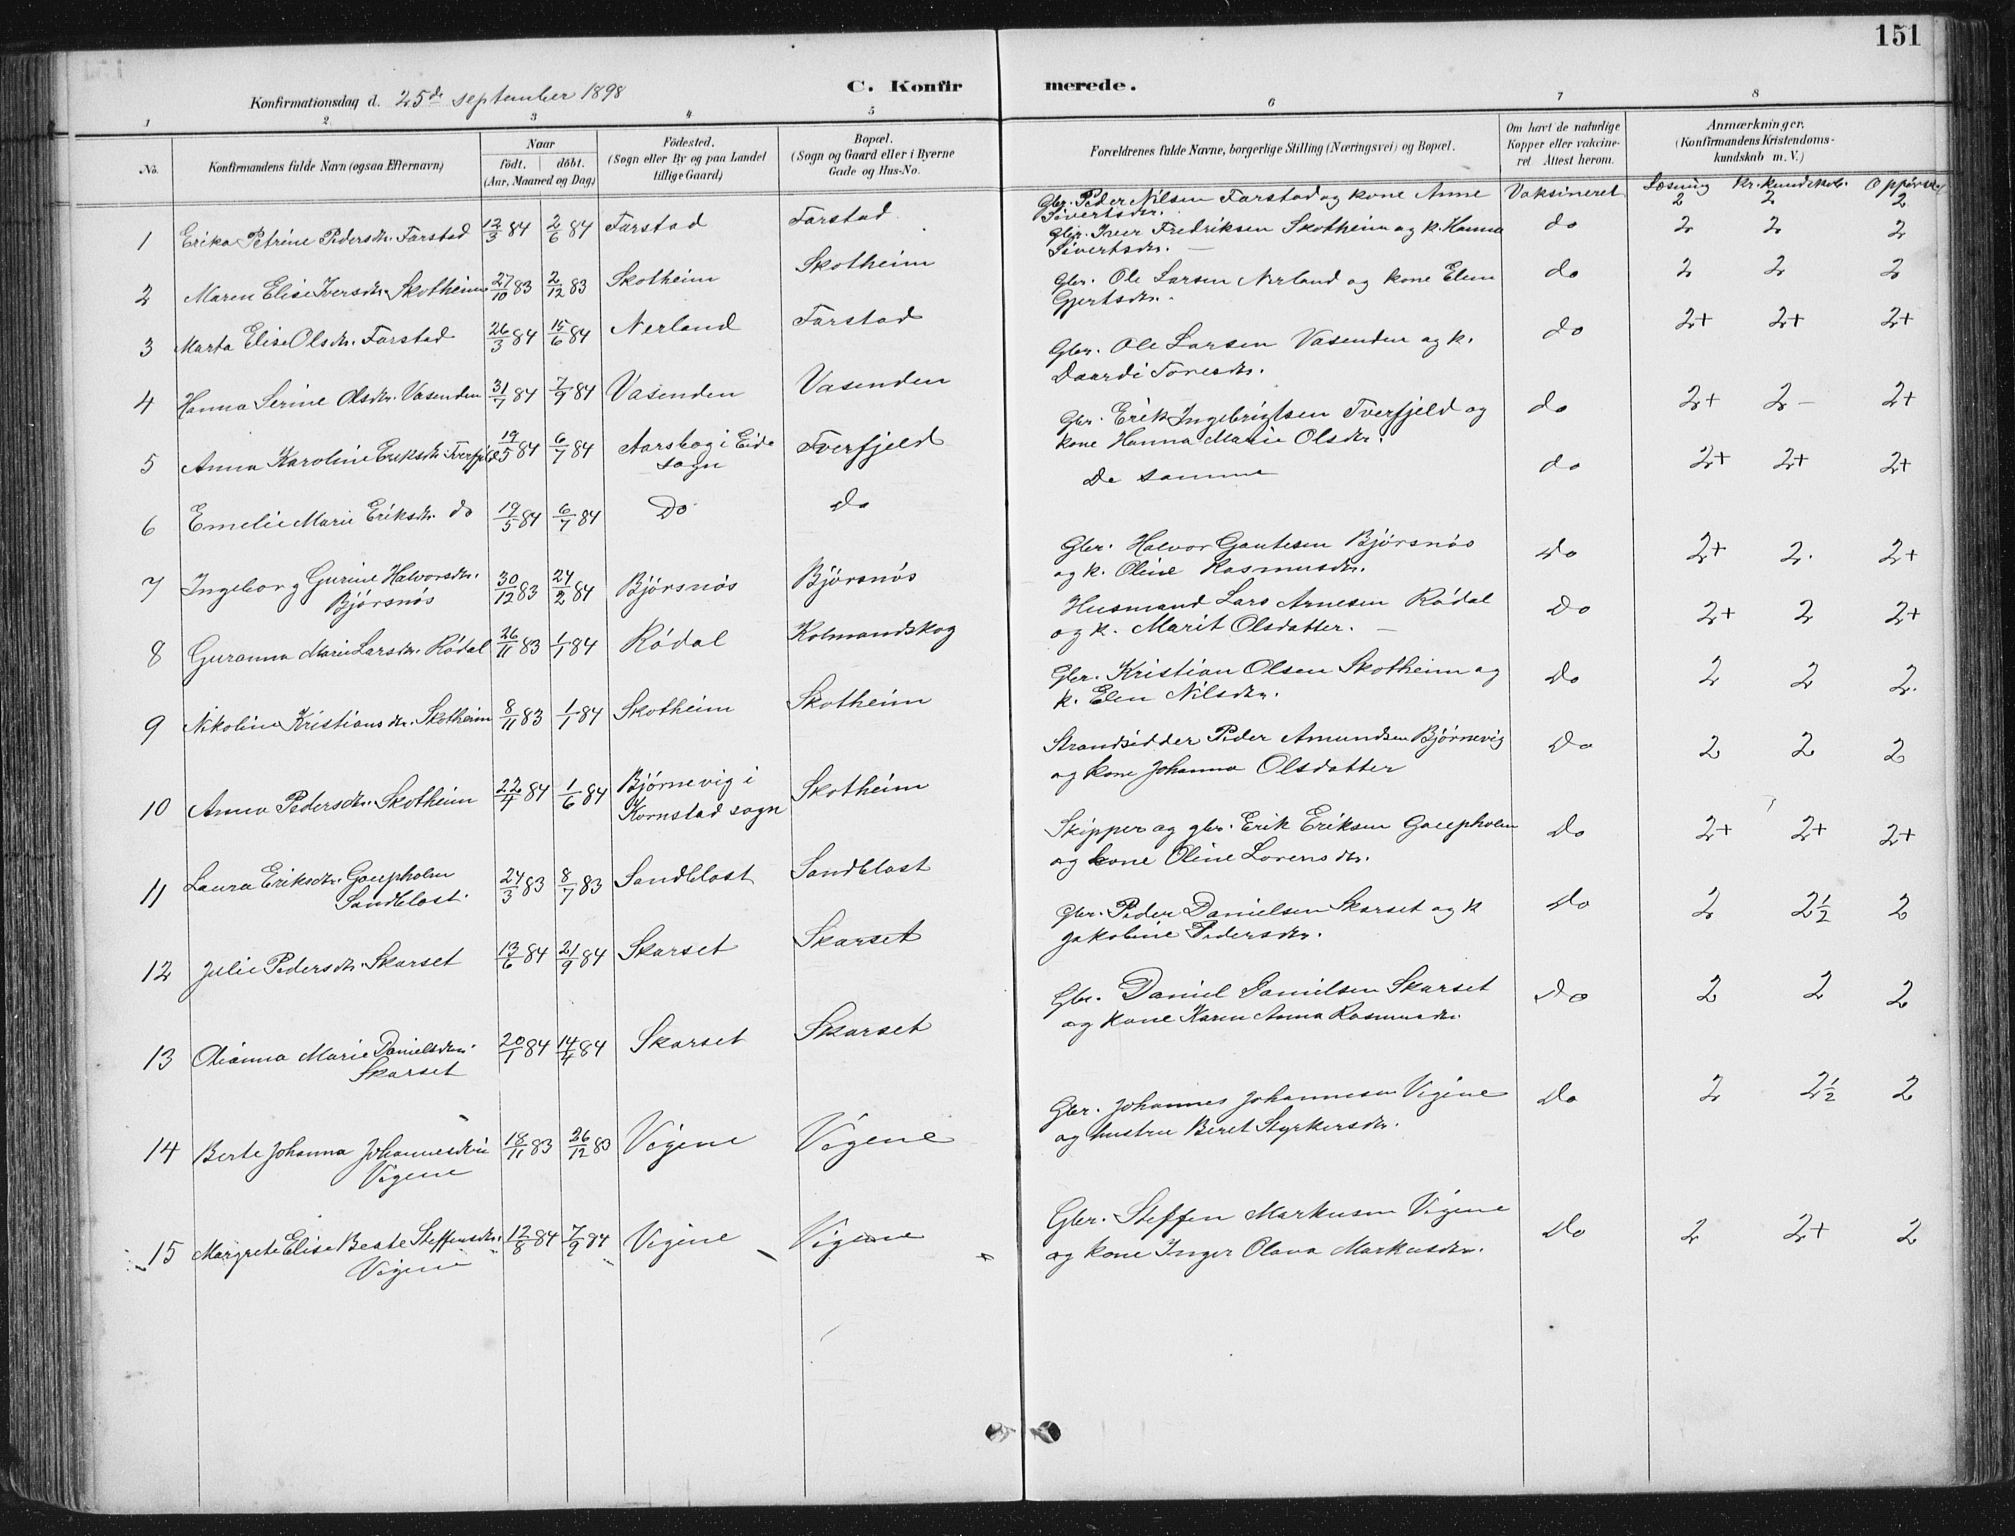 151
C. Konfirmerede.
Konfirmationsdag d. 25de september 1898
1 2 3 4 5 6 7 8
No.
Konfirmandens fulde Navn (ogsaa Efternavn)
Naar
födt. döbt.
(Aar, Maaned og Dag)
Födested.
(Sogn eller By og paa Landet
tillige Gaard)
Bopæl.
(Sogn og Gaard eller i Byerne
Gade og Hus-No.
Forældrenes fulde Navne, borgerlige Stilling (Næringsvei) og Bopæl.
Om havt de naturlige
Kopper eller vakcine-
ret Attest herom.
Anmærkninger.
(Konfirmandens Kristendoms-
kundskab m. V.)
Læsning Kr. kundskab. Oppførsel
1 Erika Petrine Pedersdtr. Farstad 12/3 84 2/6 84 Farstad Farstad Gbr. Peder Nilsen Farstad og kone Anne Vaksineret 2 2 2
Sivertsdtr.
2 Maren Elise Iversdtr. Skotheim 27/10 83 2/12 83 Skotheim Skotheim Gbr. Iver Fredriksen Skotheim og k. Hanna do 2 2 2
Sivertsdtr. —
3 Marta Elise Olsdtr. Farstad 26/3 84 15/6 84 Nerland Farstad Gbr. Ole Larsen Nerland og kone Elen do 2 2 2
Gjertsdtr.
4 Hanna Serine Olsdtr. Vasenden 31/7 84 7/9 84 Vasenden Vasenden Gbr. Ole Larsen Vasenden og k. do 2+ 2+ 2+
Daardi Toresdtr.
5 Anna Karoline Eriksdtr. Tverfjeld 19/5 84 6/7 84 Aarsbog i Eide Tverfjeld Gbr. Erik Ingebrigtsen Tverfjeld og do 2+ 2- 2+
sogn kone Hanna Marie Olsdtr.
6 Emelie Marie Eriksdtr. do 19/5 84 6/7 84 Do do De samme do 2+ 2+ 2+
7 Ingeborg Gurine Halvorsdtr. 30/12 83 24/2 84 Bjørsnös Bjørsnös Gbr. Halvor Gautesen Bjørsnös Do 2+ 2. 2+
Bjørsnös og k. Oline Rasmusdtr.
8 Guranna Marie Larsdtr. Rödal 26/11 83 1/1 84 Rödal Kolmandskog Husmand Lars Arnesen Rödal Do 2+ 2 2+
og k. Marit Olsdatter. —
9 Nikoline Kristiansdtr. Skotheim 8/11 83 1/1 84 Skotheim Skotheim Gbr. Kristian Olsen Skotheim og Do 2 2 2.
k. Elen Nilsdtr.
10 Anna Pedersdtr. Skotheim 22/4 84 1/6 84 Bjørnevig i Skotheim Strandsidder Peder Amundsen Bjørnevig Do 2 2 2
Kornstad sogn og kone Johanna Olsdatter
11 Laura Eriksdtr. Gaupholm 24/3 83 8/7 83 Sandblast Sandblast Skipper og gbr. Erik Eriksen Gaupholm Do 2+ 2+ 2+
Sandblast. og kone Oline Lorensdtr.
12 Julie Pedersdtr. Skarset 13/6 84 21/9 84 Skarset Skarset Gbr. Peder Danielsen Skarset og k Do 2 2½ 2
Jakobine Pedersdtr.
13 Olianna Marie Danielsdtr. 20/1 84 14/4 84 Skarset Skarset Gbr. Daniel Danielsen Skarset Do 2 2 2
Skarset og kone Karen Anna Rasmusdtr.
14 Berte Johanna Johannesdtr. 18/11 83 26/12 83 Vigene Vigene Gbr. Johannes Johannesen Vigene Do 2 2½ 2
Vigene og hustru Beret Styrkersdtr.
15 Margrete Elise Beate Steffensdtr. 12/8 84 7/9 84 Vigene Vigene Gbr. Steffen Markusen Vigene Do 2 2+ 2
Vigene og kone Inger Olava Markusdtr.